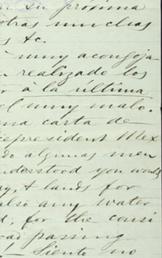 su proxima
otras muchas
s &c.
muy aconseja
realizado los
á la ultima
muy malo.
una carta de
president Mex
algunas men
understood you would
, & lands for
also any water
d. for the consi
road passing
! Siento no